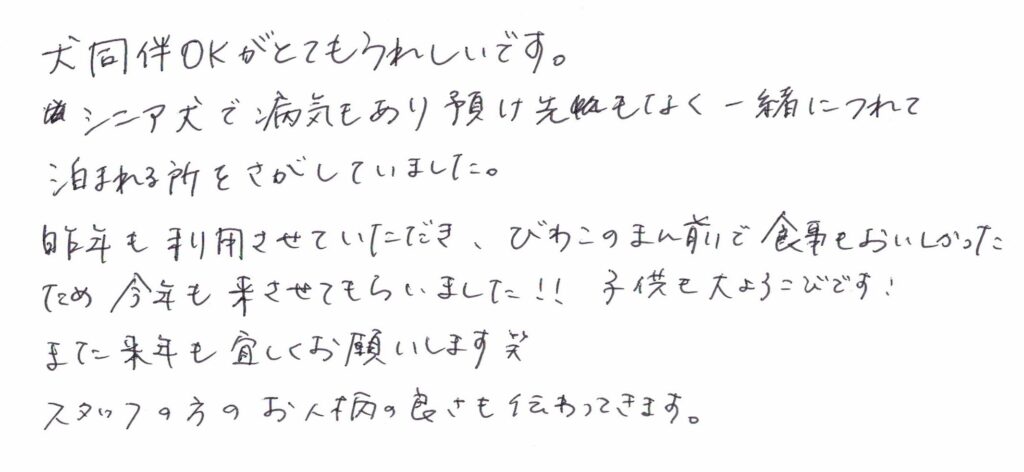 犬同伴OKがとてもうれしいです。
シニア犬で病気もあり預け先もなく一緒につれて
泊まれる所をさがしていました。
昨年も利用させていただき、びわこのまん前で食事もおいしかった
ため今年も来させてもらいました!! 子供も大よろこびです!
また来年も宜しくお願いします笑
スタッフの方のお人柄の良さも伝わってきます。